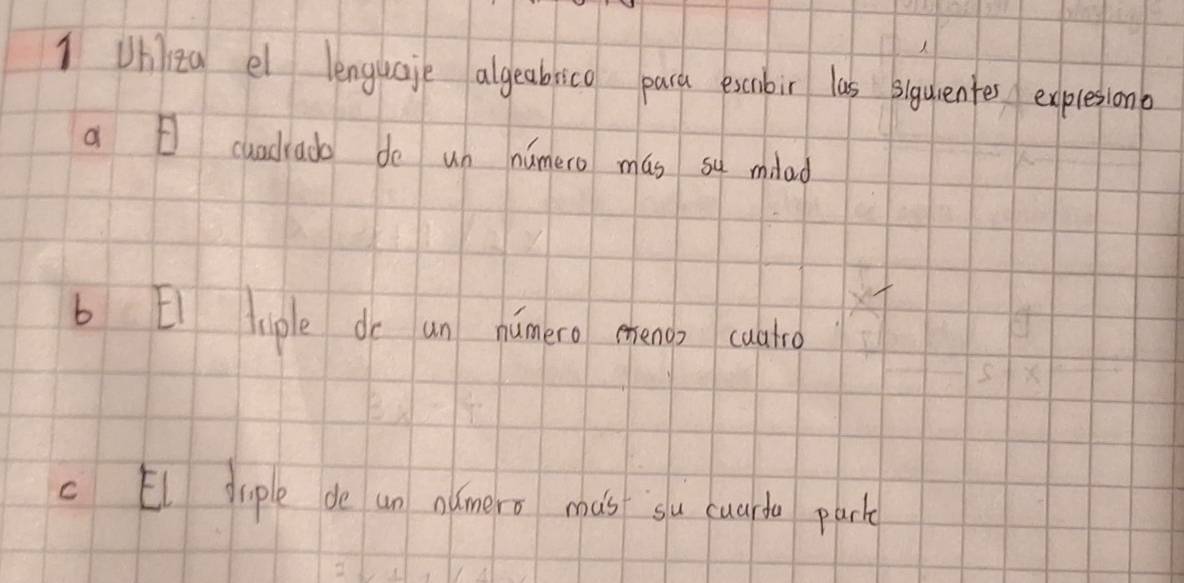 1 Utiliza el lenguaje algeabrico para escribir las siguientes expresiones
a El cuadrado de un número más su mitad
b El triple de un número menos cuatro
c El triple de un número más su cuarta parte